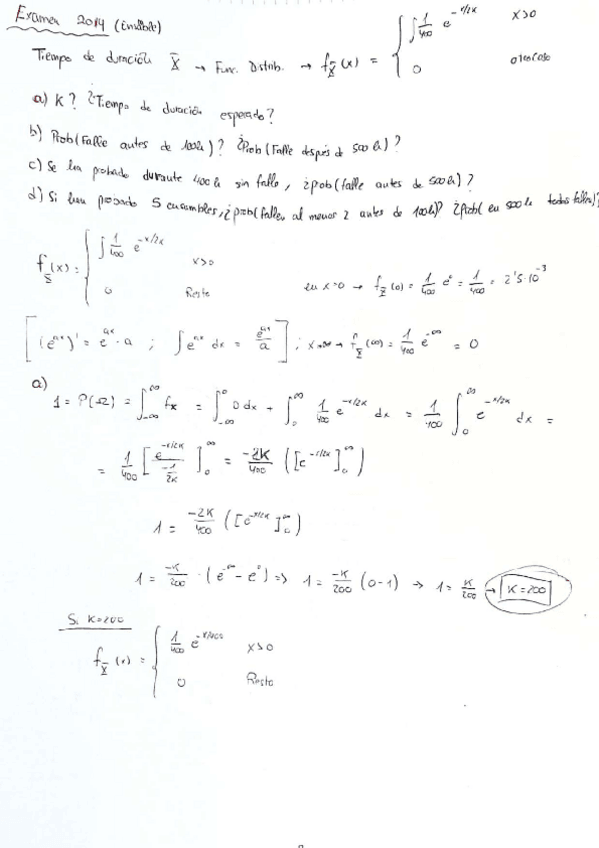 Examen 2014 (Ensamble)
Tiempo de duración X̄ → Func. Distrib. → f_X̄(x) = { ∫ 1/400 e^(-x/2k) x>0
0 otro caso
a) K? ¿Tiempo de duración esperado?
b) Prob(Falle antes de 100h)? ¿Prob(Falle después de 500h)?
c) Se ha probado durante 400h sin fallo, ¿prob(falle antes de 500h)?
d) Si han probado 5 ensambles, ¿prob(fallen al menos 2 antes de 100h)? ¿Prob(en 500h todos fallen)?
f_X̄(x) = { ∫ 1/400 e^(-x/2k) x>0
0 Resto
en x=0 → f_X̄(0) = 1/400 e^0 = 1/400 = 2'5·10^-3
[(e^ax)' = e^ax · a ; ∫ e^ax dx = e^ax/a] ; x→∞ → f_X̄(∞) = 1/400 e^-∞ = 0
a)
1 = P(Ω) = ∫_-∞^∞ fx = ∫_-∞^0 0 dx + ∫_0^∞ 1/400 e^(-x/2k) dx = 1/400 ∫_0^∞ e^(-x/2k) dx =
= 1/400 [e^(-x/2k) / (-1/2k)]_0^∞ = -2K/400 ([e^(-x/2k)]_0^∞)
1 = -2K/400 ([e^(-x/2k)]_0^∞)
1 = -K/200 · (e^-∞ - e^0) => 1 = -K/200 (0-1) → 1 = K/200 → K=200
Si K=200
f_X̄(x) = { 1/400 e^(-x/400) x>0
0 Resto